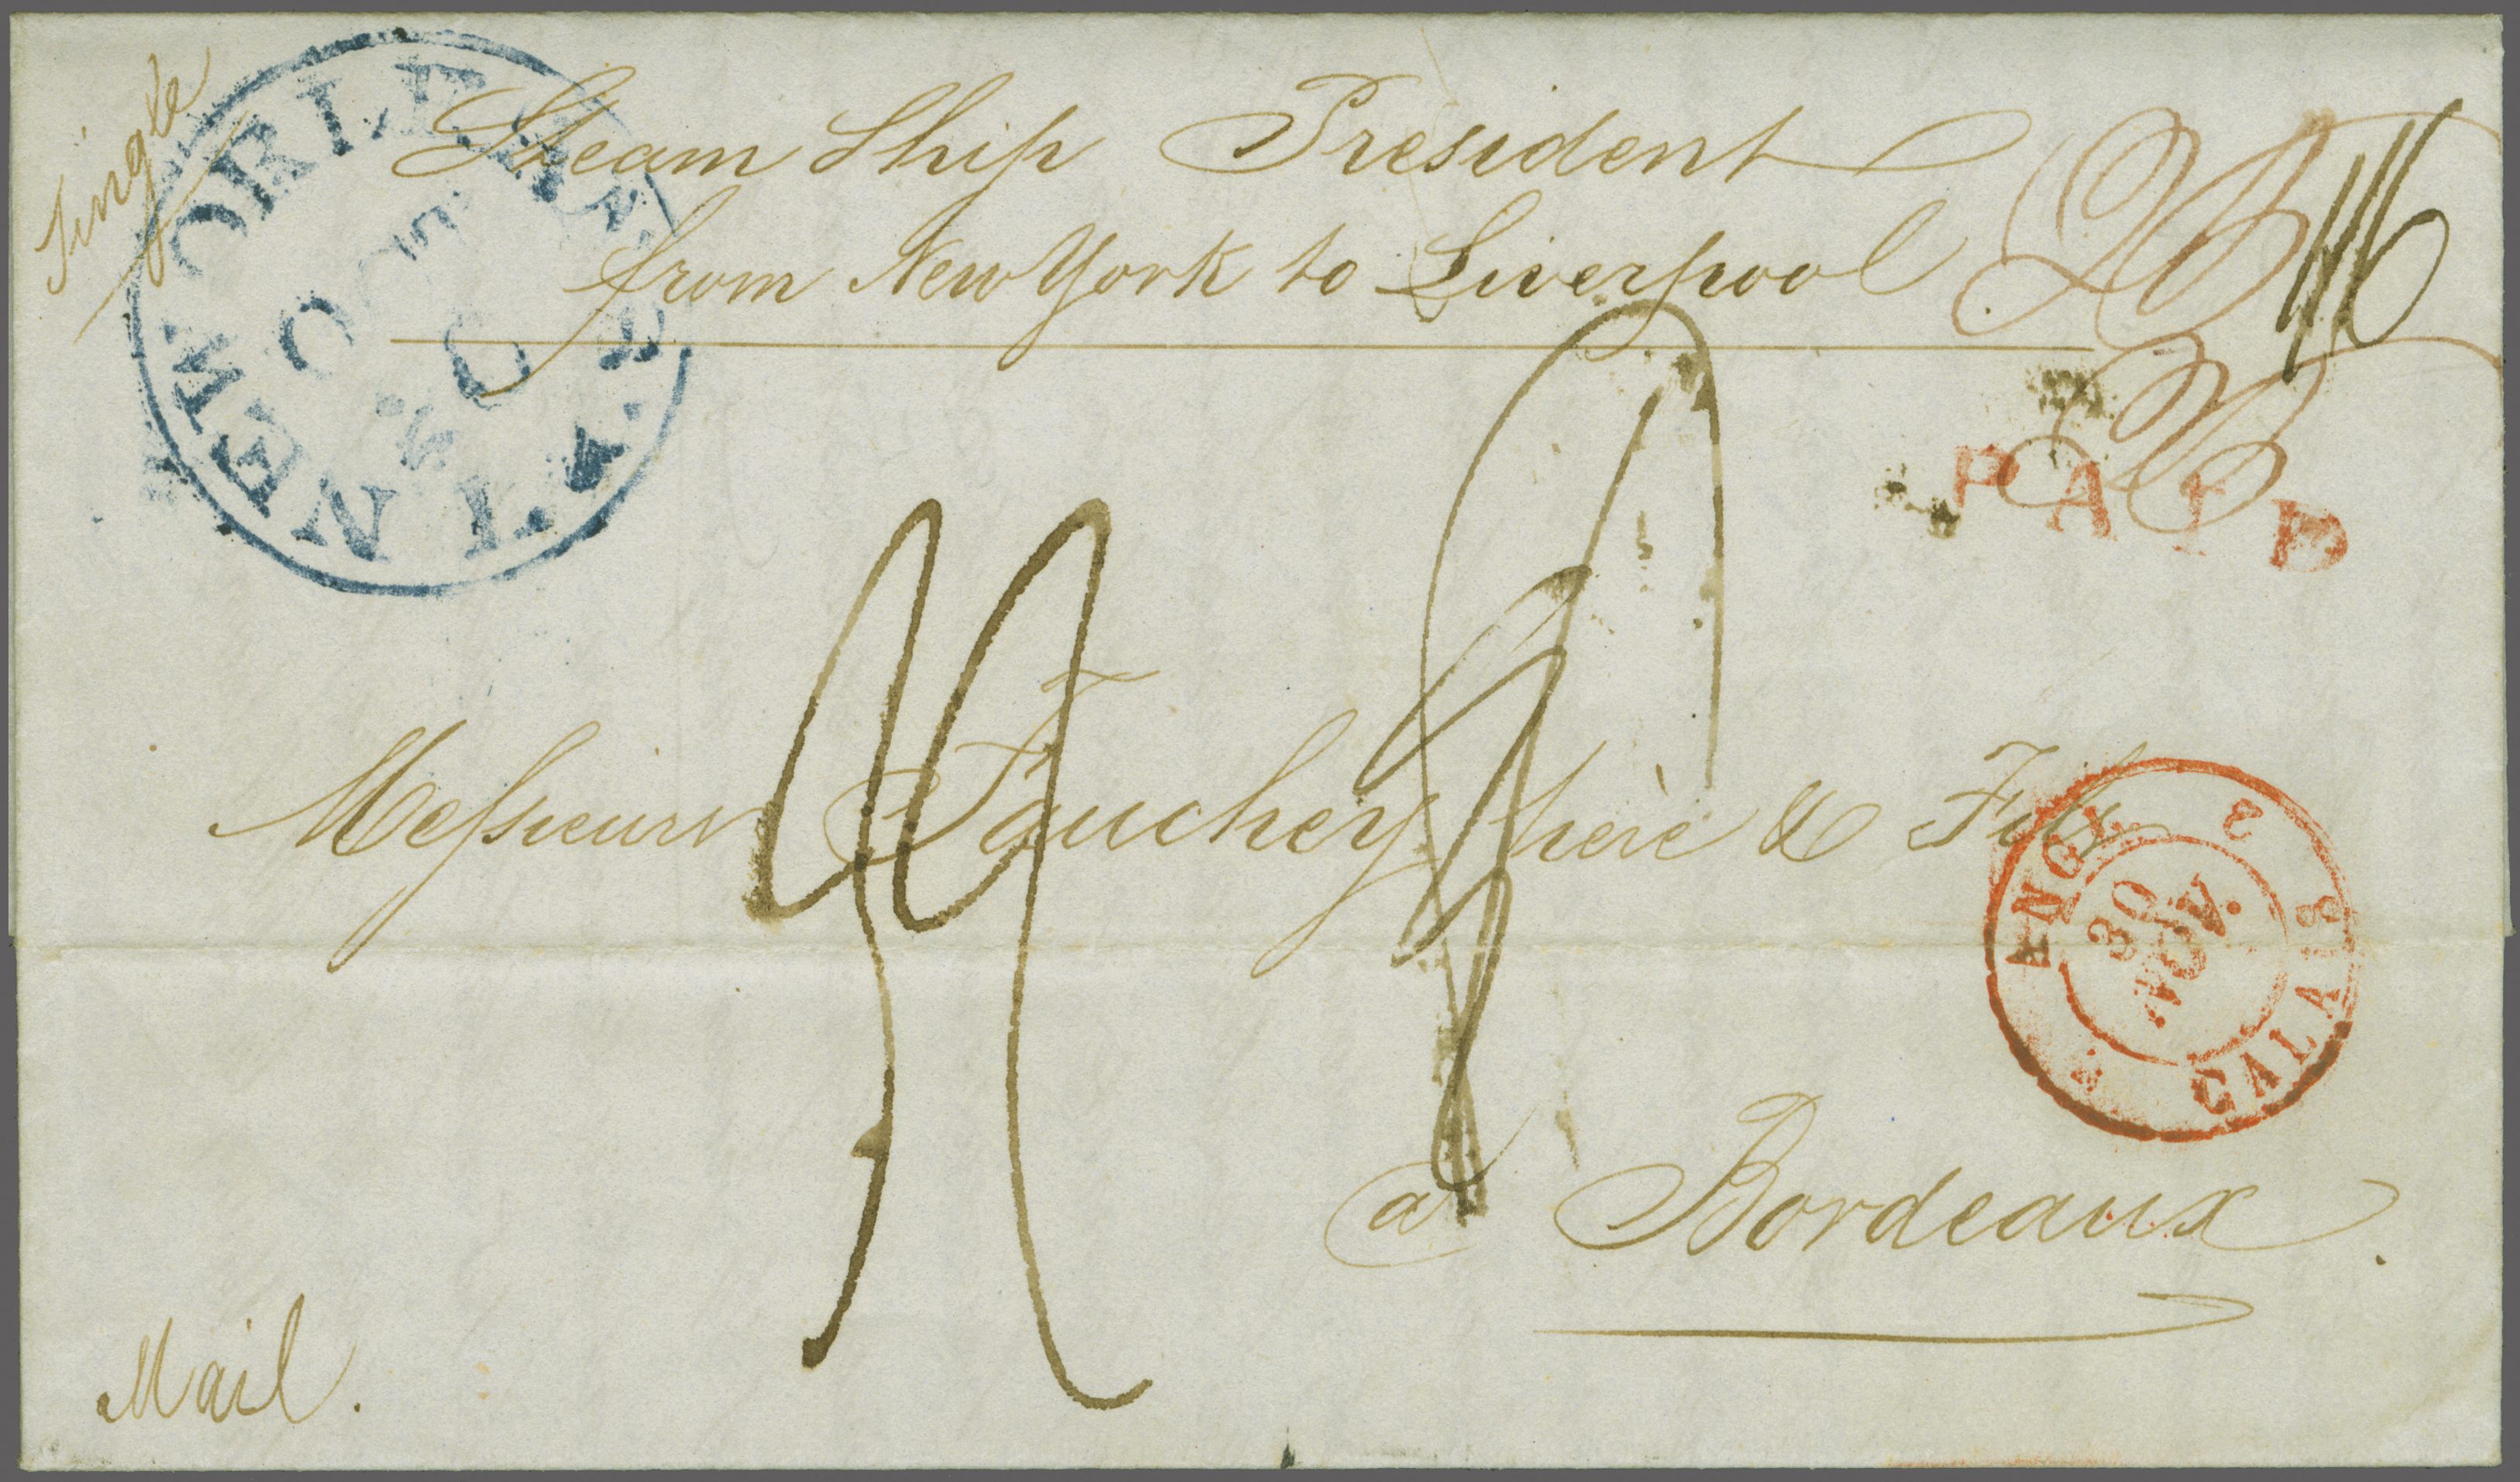 Single
NEW ORLEANS LA.
OCT 20
Steam Ship President
from New York to Liverpool
PAID
Messieurs Fauchey père & Fils
ANGL. 2 CALAIS
30
NOV.
a Bordeaux.
Mail.